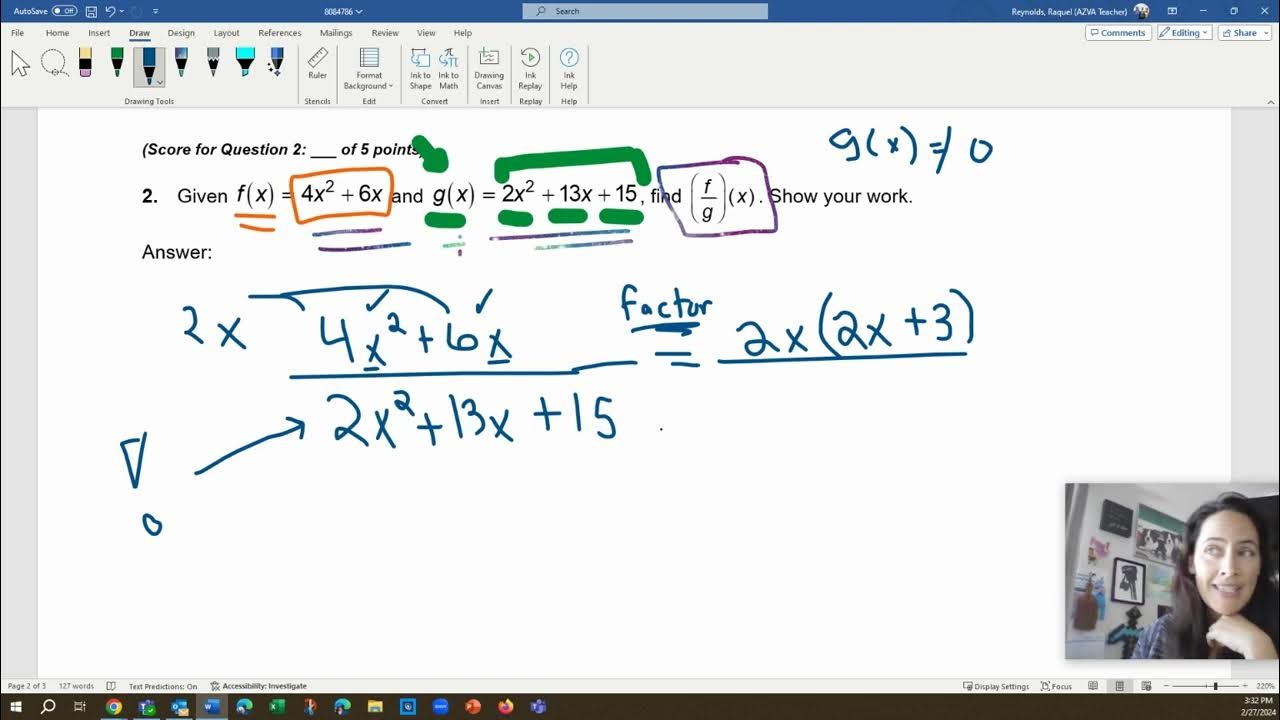 AutoSave Off 8084786 Search Reynolds, Raquel (AZVA Teacher)
File Home Insert Draw Design Layout References Mailings Review View Help Comments Editing Share
Ruler Format Background Ink to Shape Ink to Math Drawing Canvas Ink Replay Ink Help
Drawing Tools Stencils Edit Convert Insert Replay Help
g(x) ≠ 0
(Score for Question 2: ___ of 5 points
2. Given f(x) = 4x² + 6x and g(x) = 2x² + 13x + 15, find (f/g)(x). Show your work.
Answer:
factor
2x 4x² + 6x = 2x(2x + 3)
2x² + 13x + 15
0
Page 2 of 3 127 words Text Predictions: On Accessibility: Investigate Display Settings Focus 220%
3:32 PM
2/27/2024